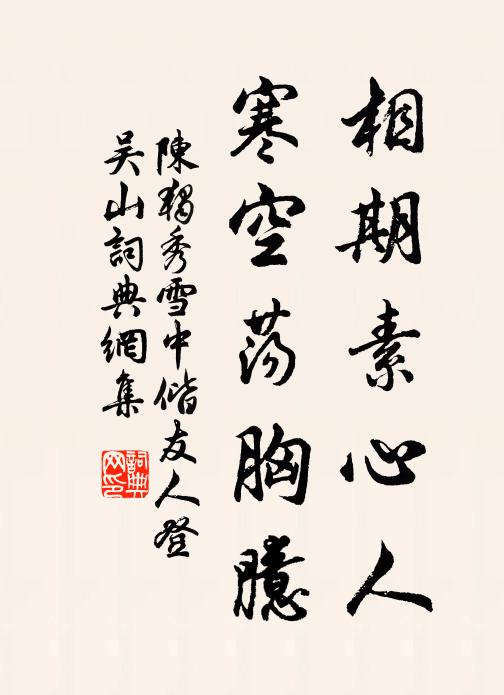 相期素心人
寒空荡胸臆
陳獨秀雪中偕友人登
吴山詞典網集
詞典网印